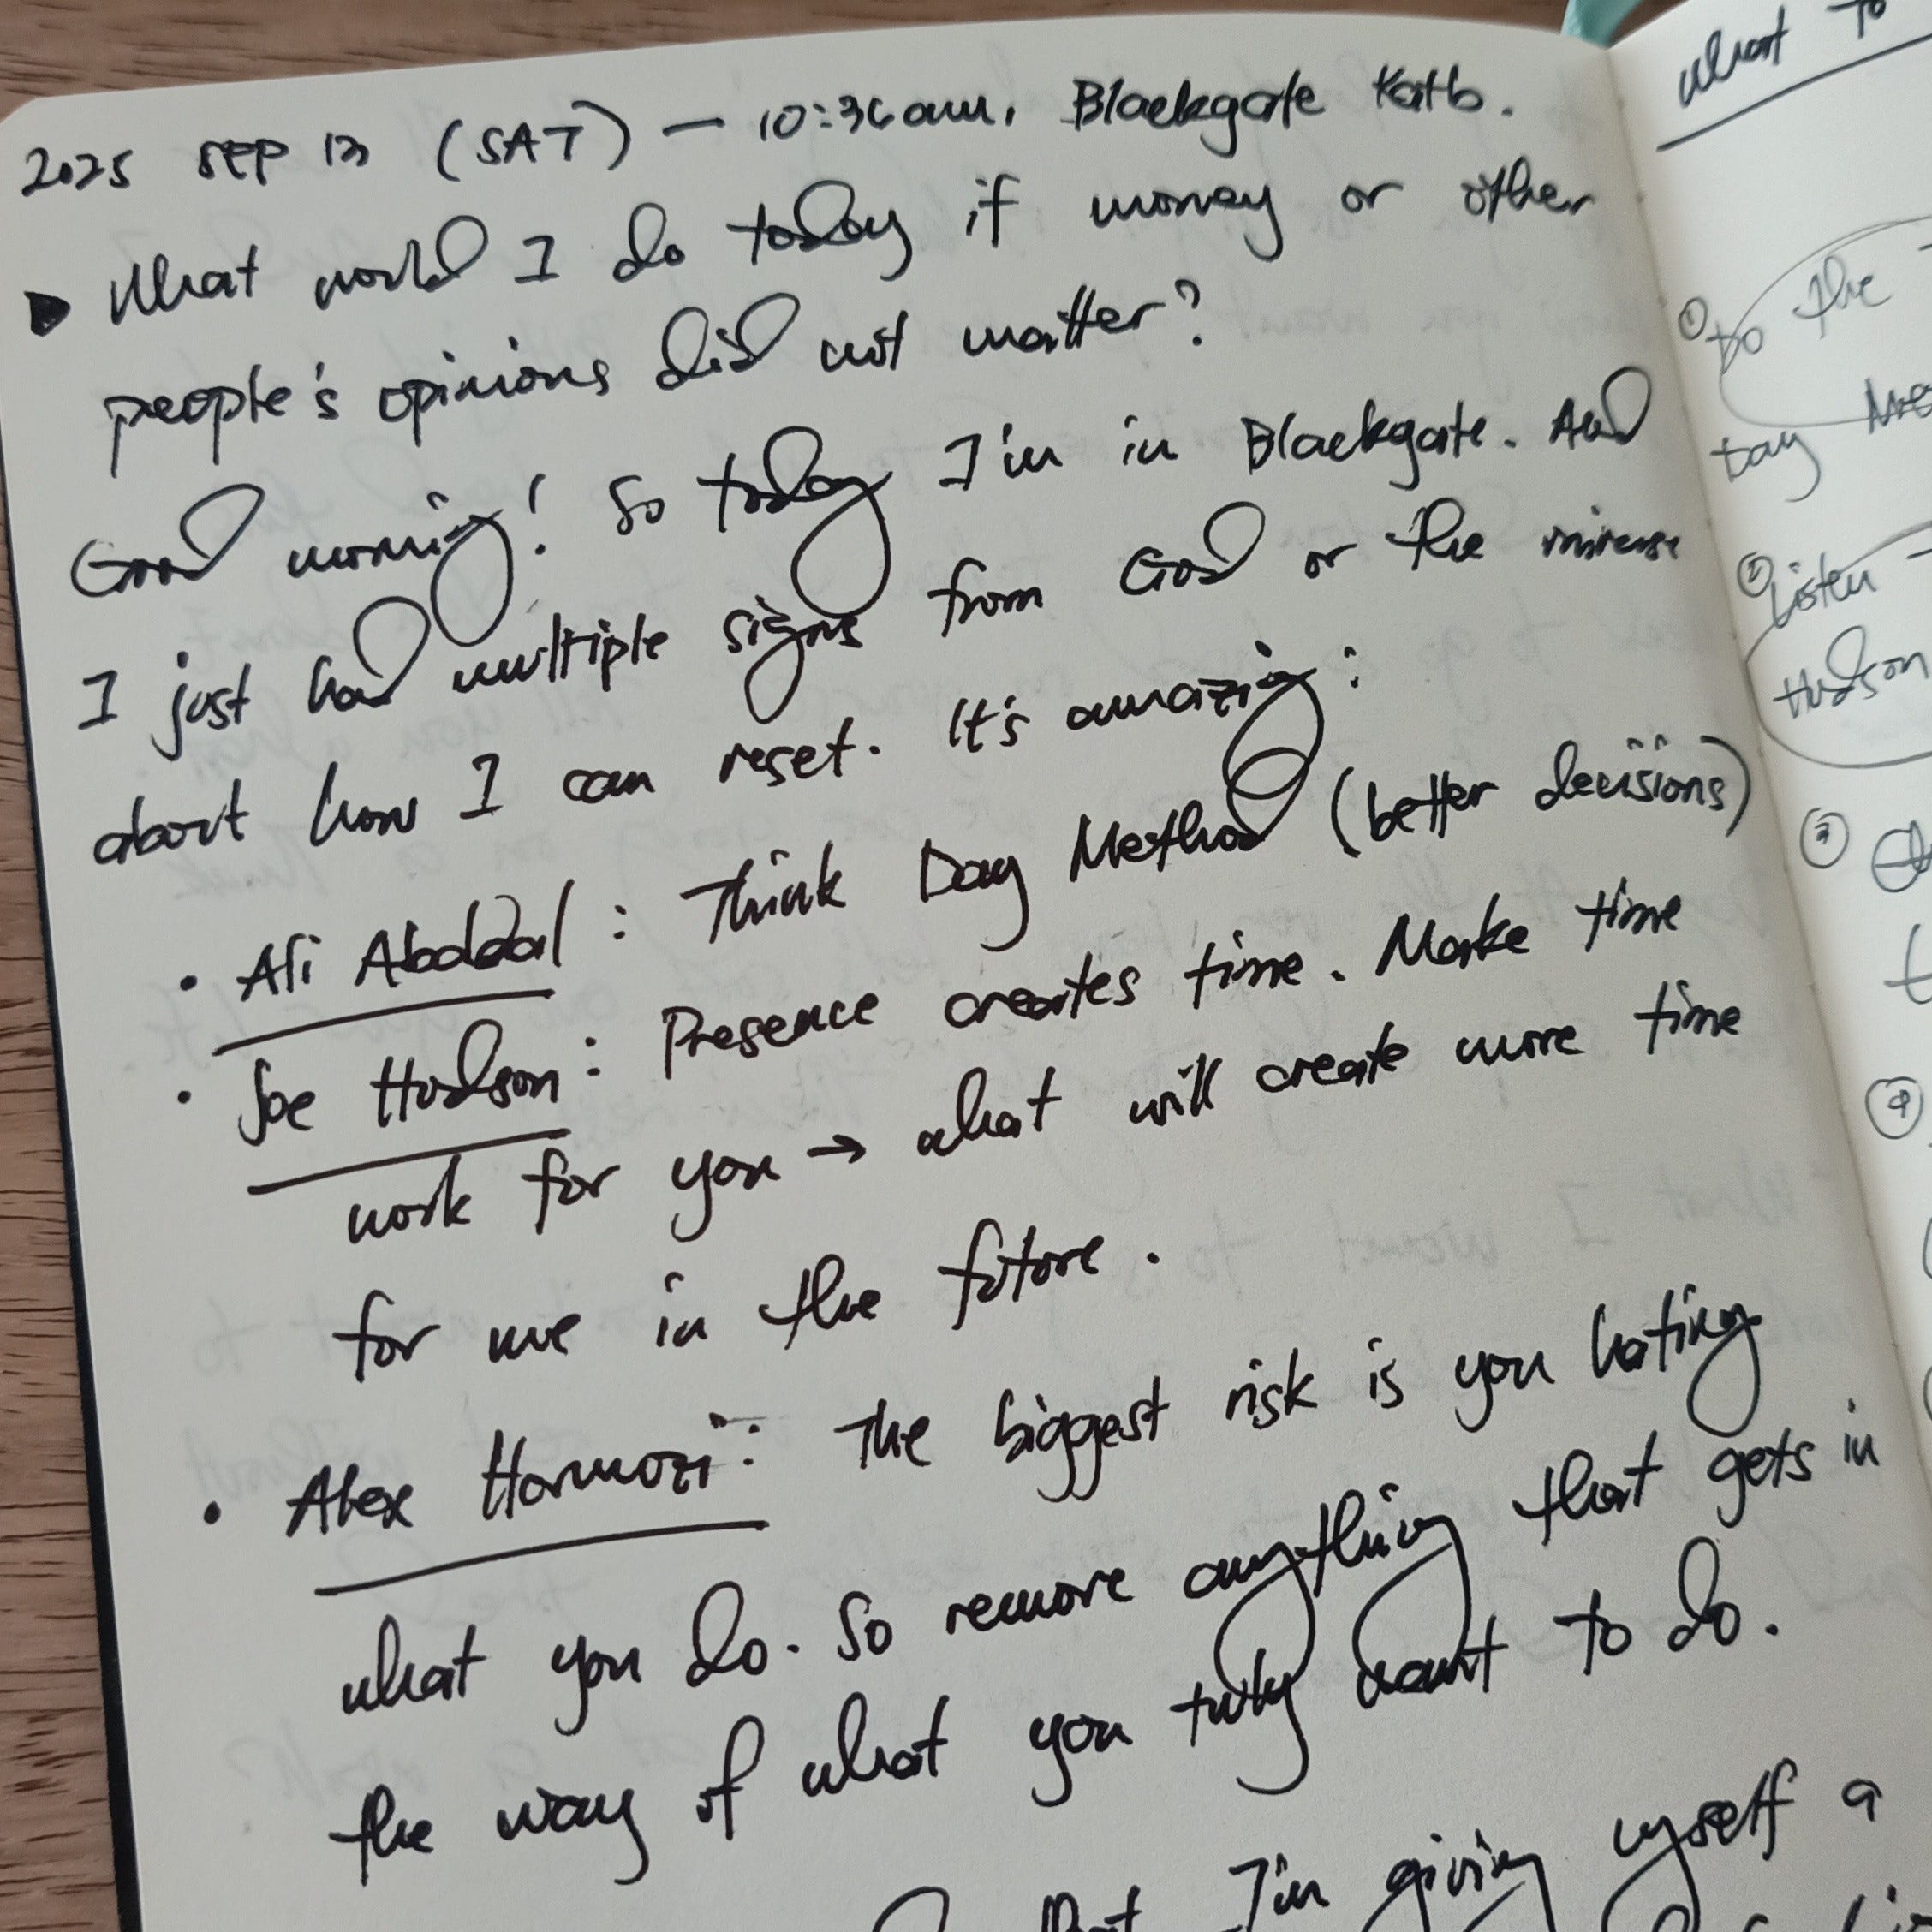 2025 SEP 13 (SAT) — 10:36am, Blackgate Katb.
▶ What would I do today if money or other
people's opinions did not matter?
Good morning! So today I'm in Blackgate. And
I just had multiple signs from God or the universe
about how I can reset. It's amazing:
• Ali Abdaal: Think Day Method (better decisions)
• Joe Hudson: Presence creates time. Make time
work for you → what will create more time
for me in the future.
• Alex Hormozi: The biggest risk is you hating
what you do. So remove anything that gets in
the way of what you truly want to do.
I'm giving myself a
what to
① to the
Day
② Listen
Hudson
③
④